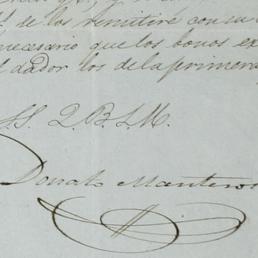 de los remitiré con su
necesario que los bonos ex
dador los de la primera
S. S. Q. B. S. M.
Donato Manteros